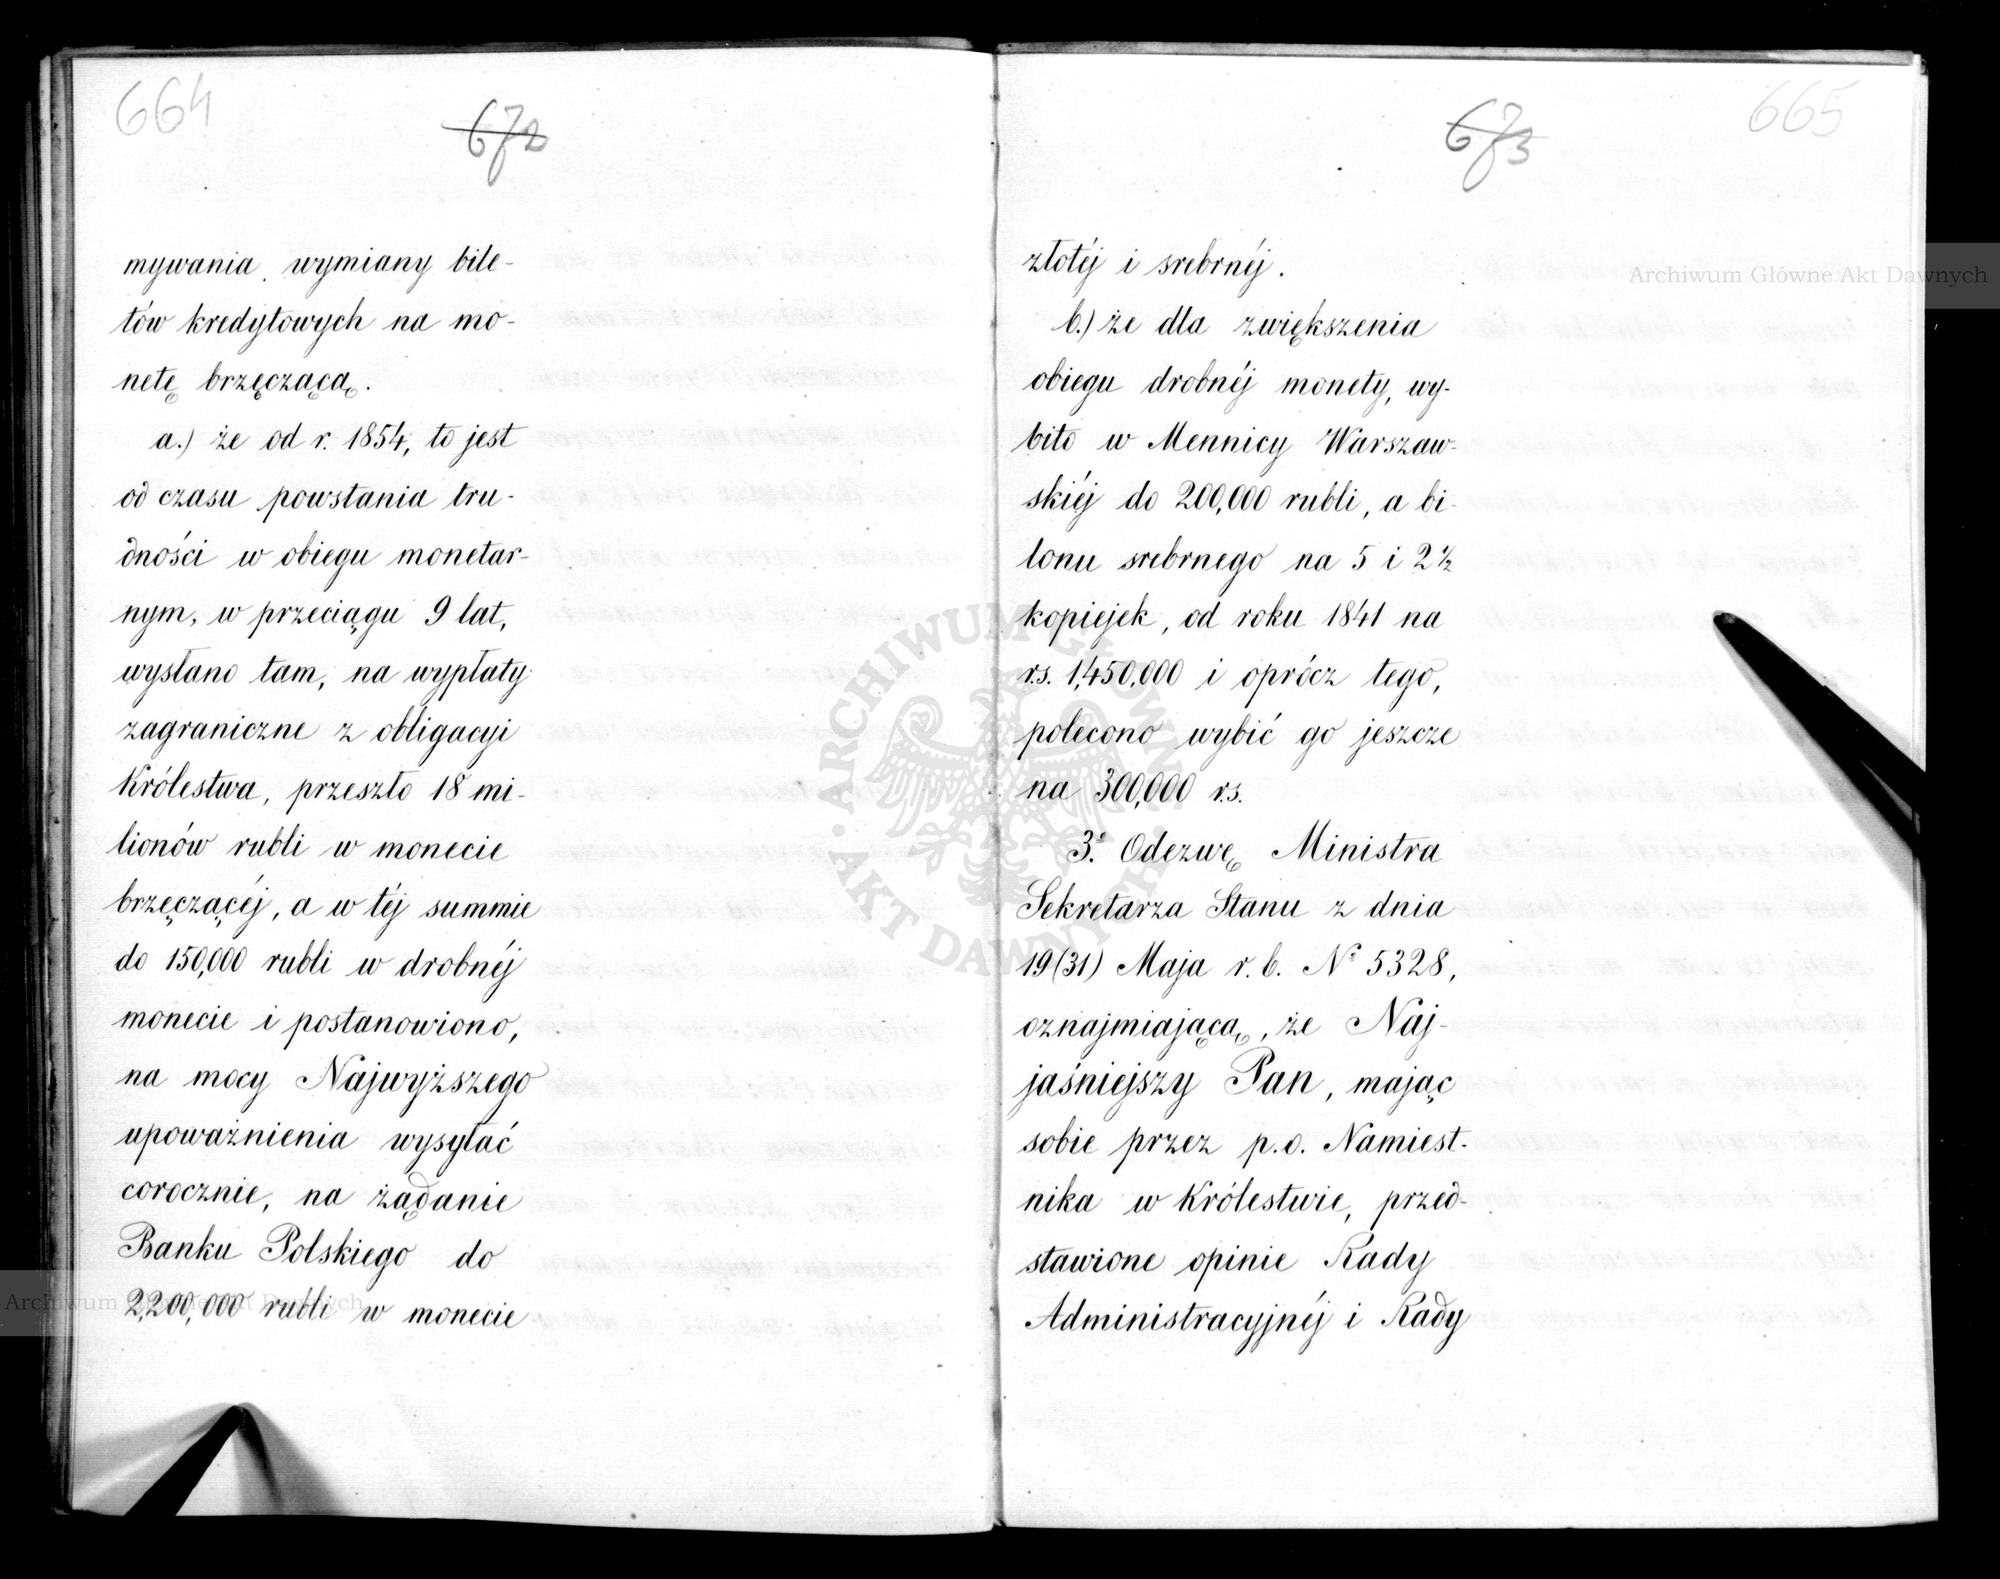 664
672
mywania wymiany bile-
tów kredytowych na mo-
netę brzęczącą.
a.) że od r. 1854, to jest
od czasu powstania tru-
dności w obiegu monetar-
nym, w przeciągu 9 lat,
wysłano tam, na wypłaty
zagraniczne z obligacyi
Królestwa, przeszło 18 mi-
lionów rubli w monecie
brzęczącéj, a w téj summie
do 150,000 rubli w drobnéj
monecie i postanowiono,
na mocy Najwyższego
upoważnienia wysyłać
corocznie, na żądanie
Banku Polskiego do
2,200,000 rubli w monecie
Archiwum Główne Akt Dawnych
673
665
złotéj i srebrnéj.
Archiwum Główne Akt Dawnych
b.) że dla zwiększenia
obiegu drobnéj monety, wy-
bito w Mennicy Warszaw-
skiéj do 200,000 rubli, a bi-
lonu srebrnego na 5 i 2 ½
kopiejek, od roku 1841 na
rs. 1,450,000 i oprócz tego,
polecono wybić go jeszcze
na 300,000 rs.
3.° Odezwę Ministra
Sekretarza Stanu z dnia
19 (31) Maja r. b. N° 5328,
oznajmiającą, że Naj-
jaśniejszy Pan, mając
sobie przez p.o. Namiest-
nika w Królestwie, przed-
stawione opinie Rady
Administracyjnéj i Rady
ARCHIWUM GŁÓWNE
AKT DAWNYCH